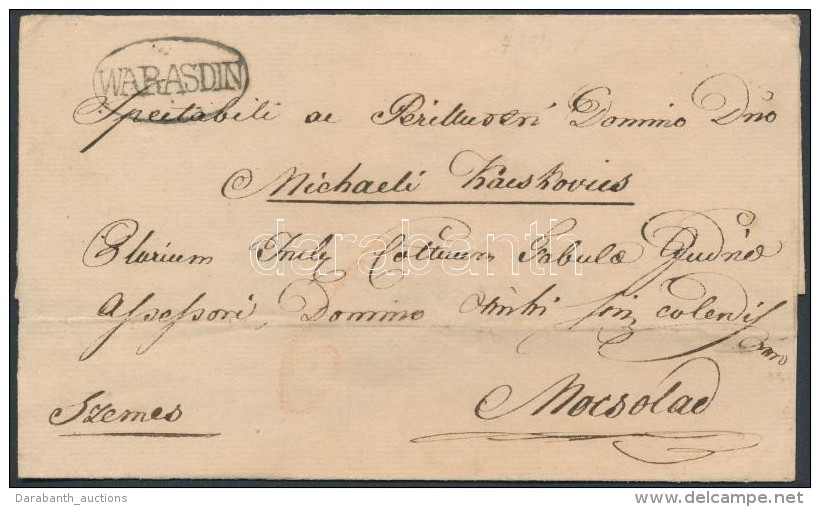 WARASDIN
Spectabili ac Perillustri Domino Dno
Michaeli Kacskovics
Plurium Incly Cottuum Tabulæ Judriæ
Assessori, Domino colendis
simo
Szemes
Mocsolad
darabanth
Darabanth_auctions
http://www.delcampe.net